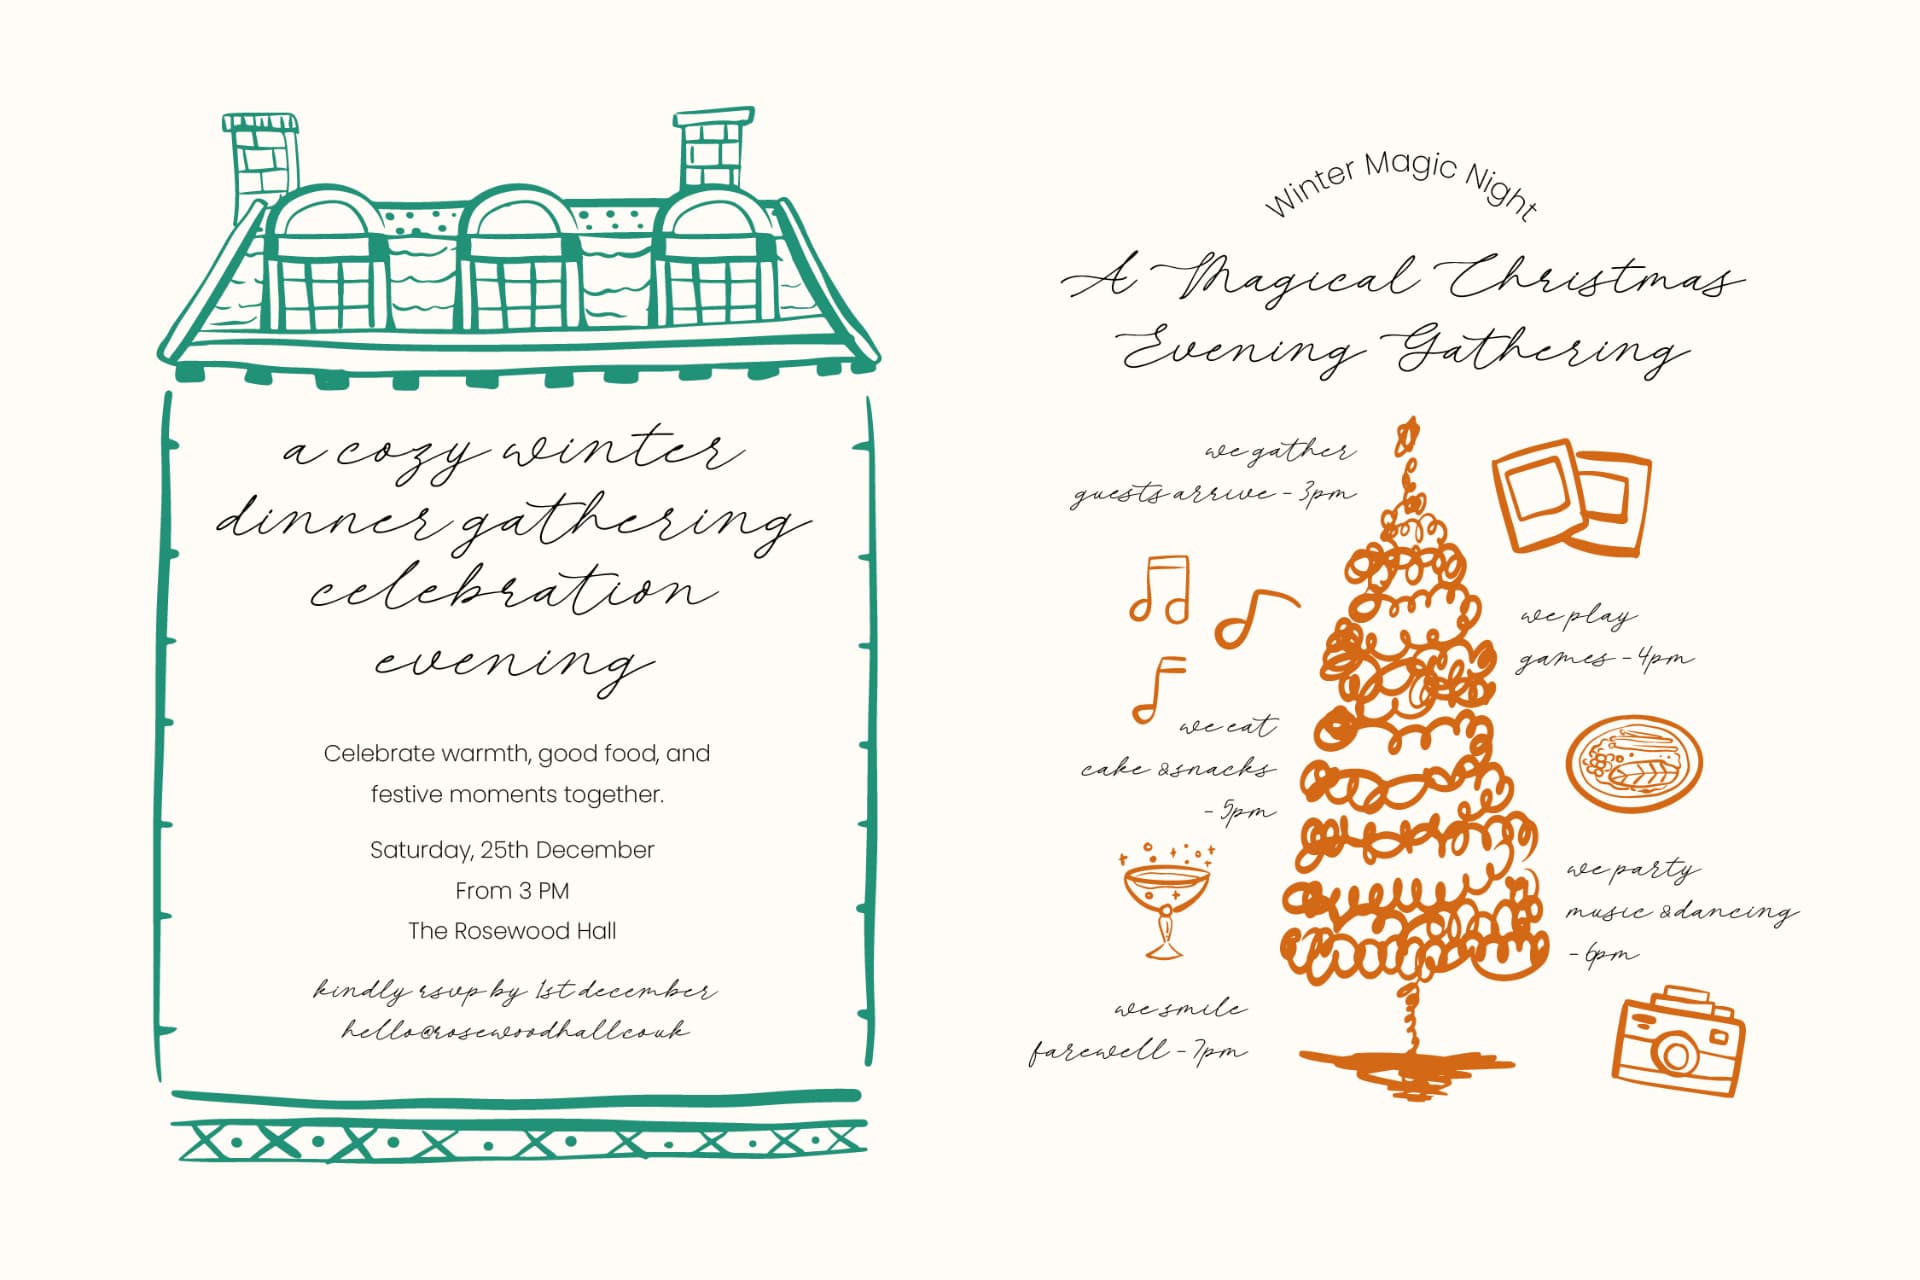 a cozy winter
dinner gathering
celebration
evening
Celebrate warmth, good food, and
festive moments together.
Saturday, 25th December
From 3 PM
The Rosewood Hall
kindly rsvp by 1st december
hello@rosewoodhallcouk
Winter Magic Night
A Magical Christmas
Evening Gathering
we gather
guests arrive - 3pm
we play
games - 4pm
we eat
cake &snacks
- 5pm
we party
music &dancing
- 6pm
we smile
farewell - 7pm